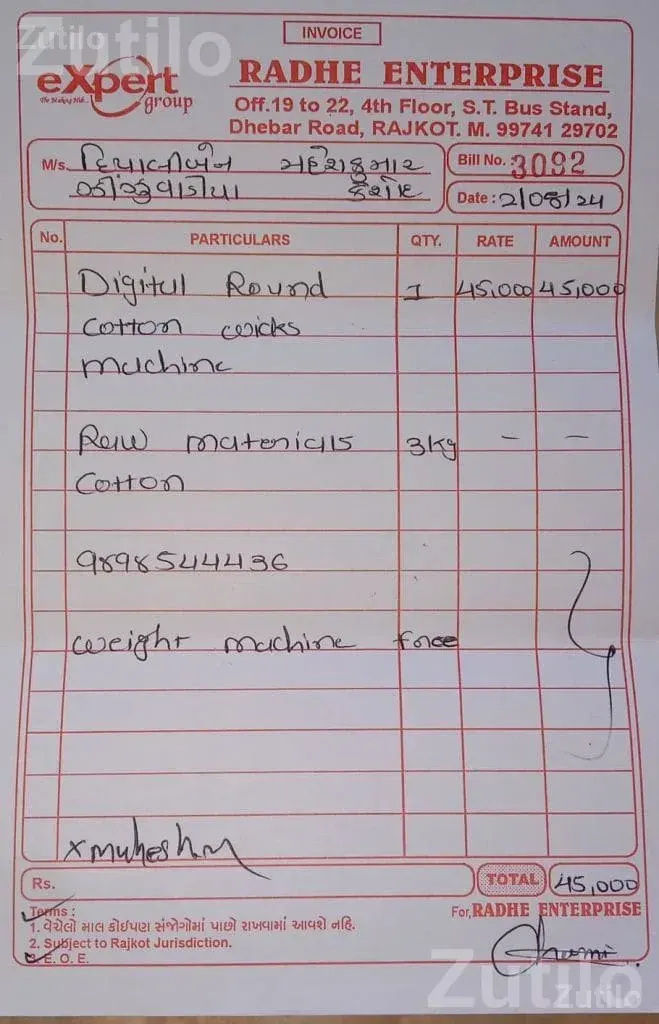 Zutilo
Zutilo
INVOICE
eXpert
The Making Hub...
group
RADHE ENTERPRISE
Off.19 to 22, 4th Floor, S.T. Bus Stand,
Dhebar Road, RAJKOT. M. 99741 29702
M/s. દિપાલીબેન મહેશકુમાર
ઝીંઝુવાડીયા કેશોદ
Bill No. : 3092
Date : 2/08/24
No. PARTICULARS QTY. RATE AMOUNT
Digitul Round 1 45,000 45,000
cotton wicks
machine
Raw materials 3kg - -
Cotton
9898544436
weight machine free
x Mukesh.M
Rs. TOTAL 45,000
Terms : For, RADHE ENTERPRISE
1. વેચેલો માલ કોઈપણ સંજોગોમાં પાછો રાખવામાં આવશે નહિ.
2. Subject to Rajkot Jurisdiction.
E. O. E.
Zutilo
Zutilo